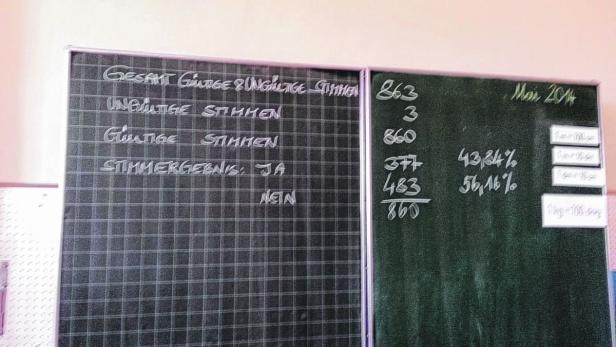 GESAMT GÜLTIGE & UNGÜLTIGE STIMMEN 863
UNGÜLTIGE STIMMEN 3
GÜLTIGE STIMMEN 860
STIMMERGEBNIS: JA 377 43,84%
NEIN 483 56,16%
860
Mai 2014